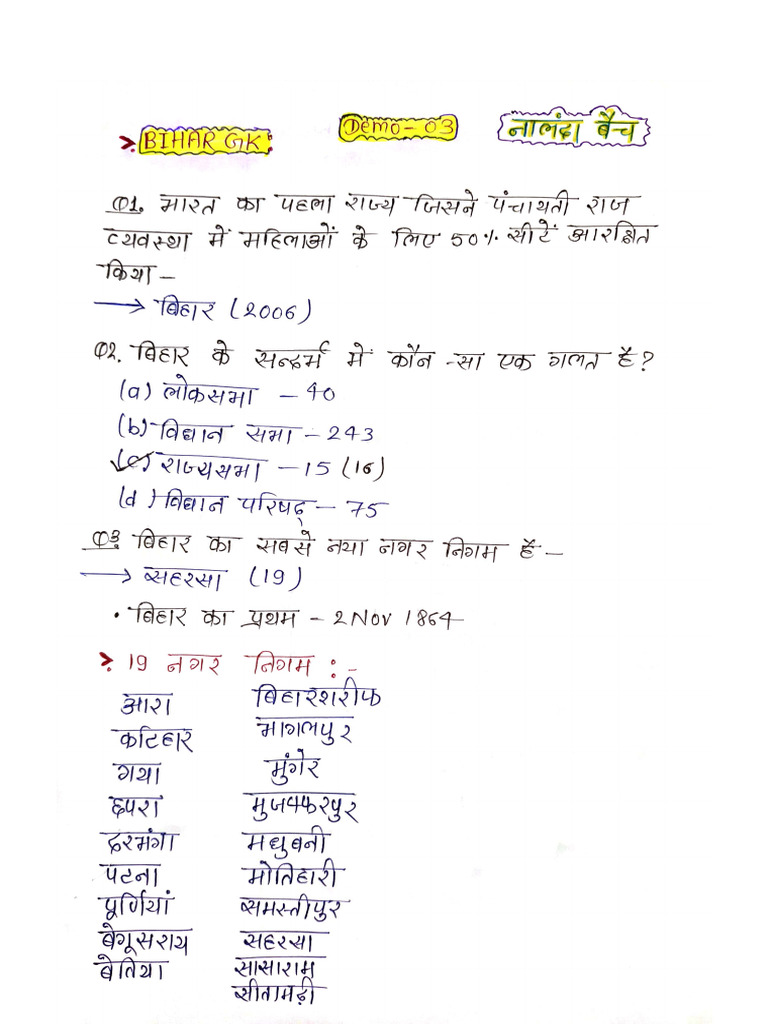 > BIHAR GK:
Demo-03
नालंदा बैच
Q1. भारत का पहला राज्य जिसने पंचायती राज
व्यवस्था में महिलाओं के लिए 50% सीटें आरक्षित
किया -
→ बिहार (2006)
Q2. बिहार के सन्दर्भ में कौन-सा एक गलत है?
(a) लोकसभा - 40
(b) विधान सभा - 243
(c) राज्यसभा - 15 (16)
(d) विधान परिषद् - 75
Q3 बिहार का सबसे नया नगर निगम है -
→ सहरसा (19)
• बिहार का प्रथम - 2 Nov 1864
> 19 नगर निगम :-
आरा बिहारशरीफ
कटिहार भागलपुर
गया मुंगेर
छपरा मुजफ्फरपुर
दरभंगा मधुबनी
पटना मोतिहारी
पूर्णियां समस्तीपुर
बेगूसराय सहरसा
बेतिया सासाराम
सीतामढ़ी